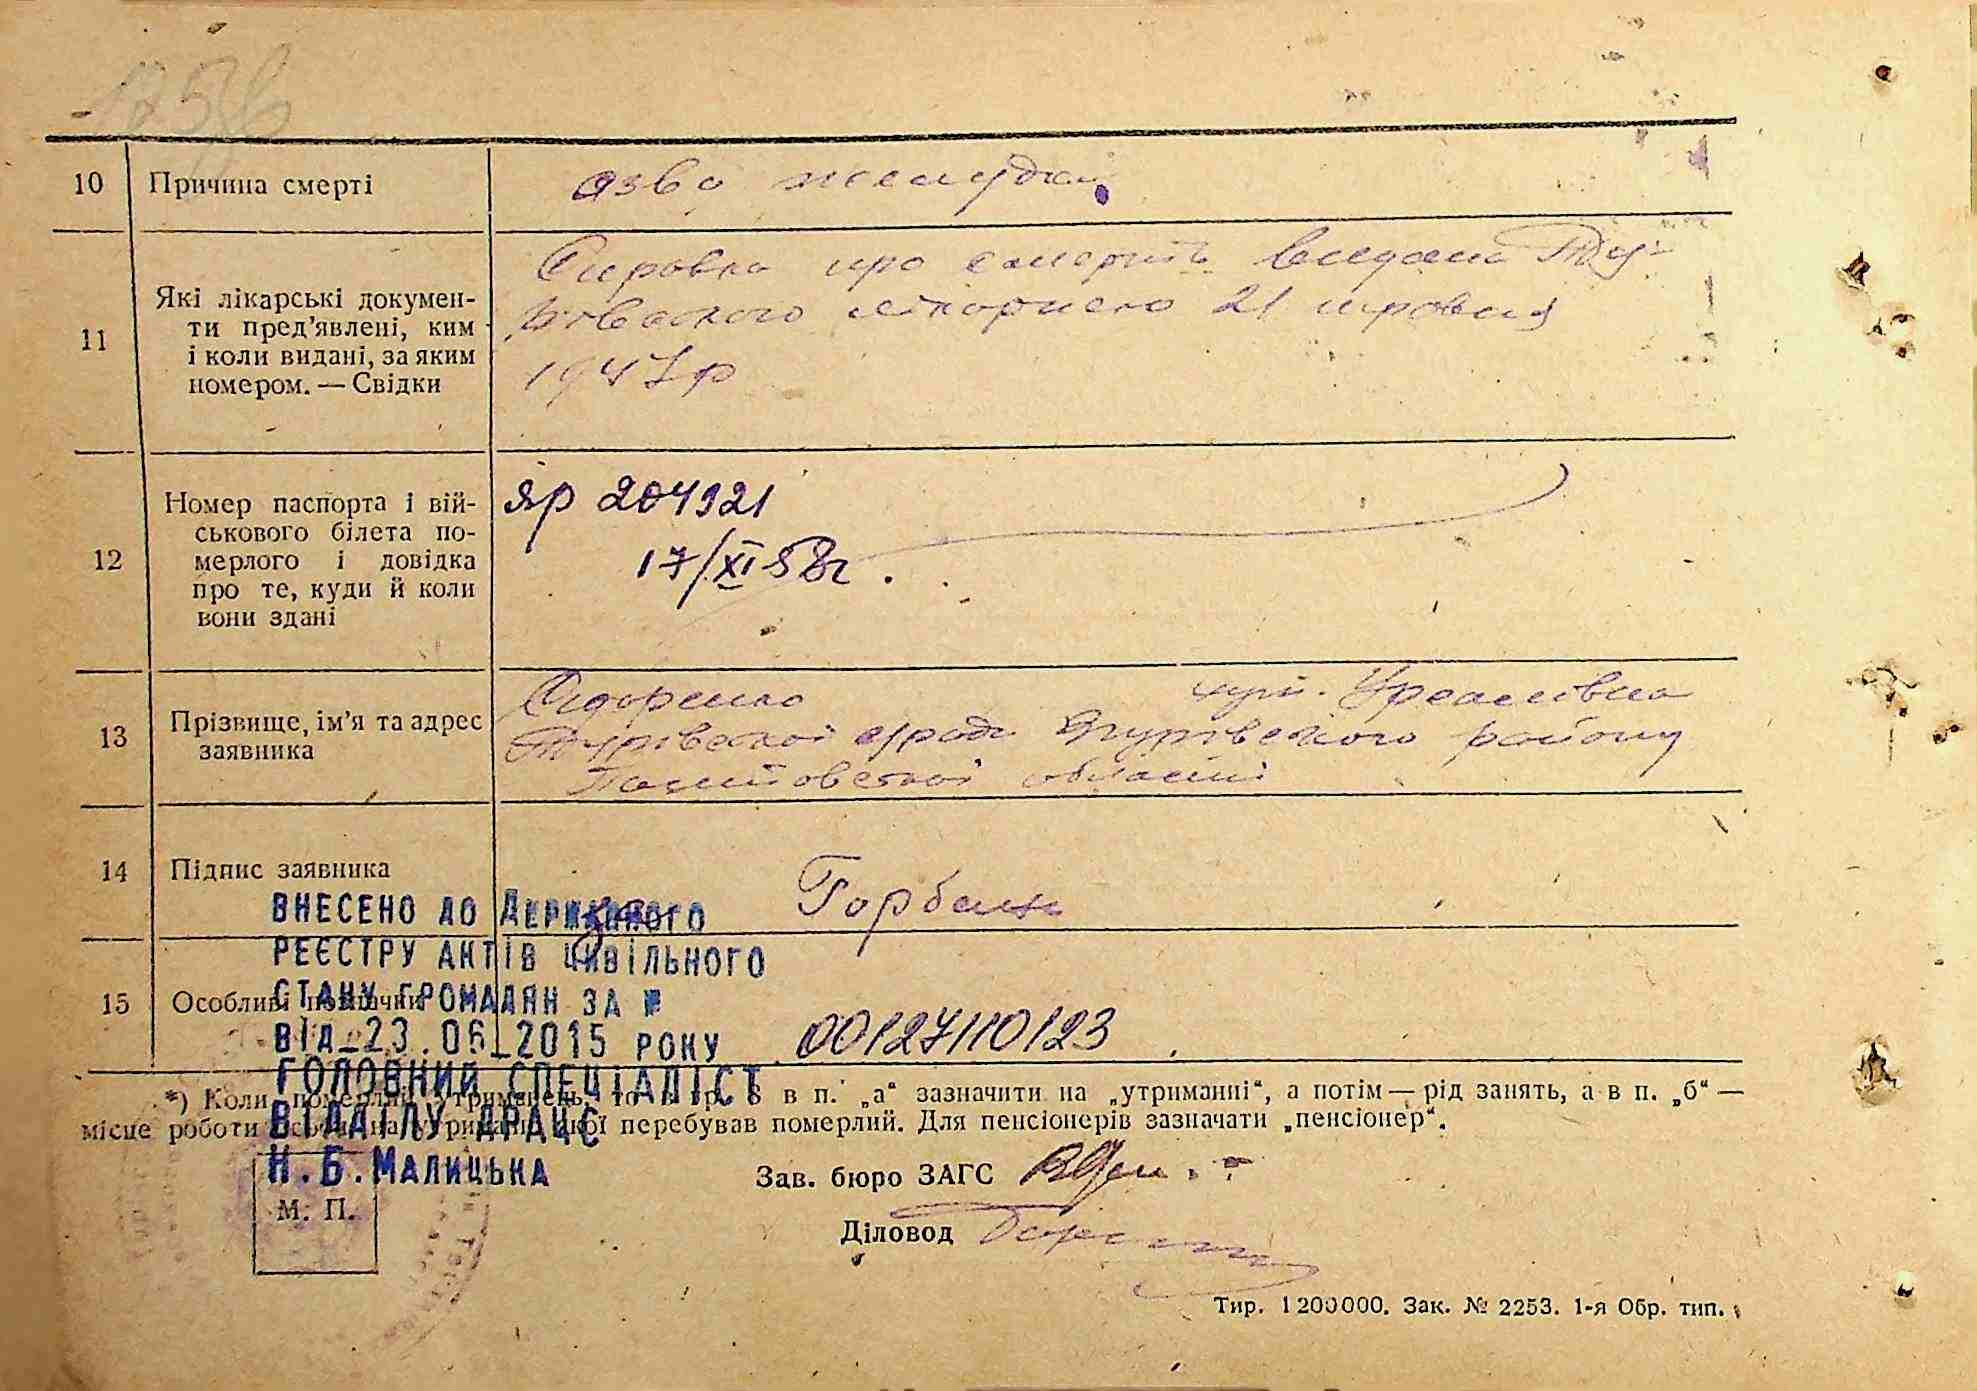 10 Причина смерті
язва желудка
11 Які лікарські докумен-
ти пред'явлені, ким
і коли видані, за яким
номером. — Свідки
про смерть видана
21
1947р
12 Номер паспорта і вій-
ськового білета по-
мерлого і довідка
про те, куди й коли
вони здані
яр 204921
17/XI 58г.
13 Прізвище, ім'я та адрес
заявника
Сидоренко
Турівської Згурівського району
Полтовської області
14 Підпис заявника
Горбань
15 Особливі позначки
ВНЕСЕНО ДО ДЕРЖАВНОГО
РЕЄСТРУ АКТІВ ЦИВІЛЬНОГО
СТАНУ ГРОМАДЯН ЗА №
ВІД 23.06 2015 РОКУ 00127110123
ГОЛОВНИЙ СПЕЦІАЛІСТ
ВІДДІЛУ ДРАЦС
Н.Б.МАЛИЦЬКА
*) Коли в п. „а“ зазначити на „утриманні“, а потім — рід занять, а в п. „б“ —
місце роботи перебував померлий. Для пенсіонерів зазначати „пенсіонер“.
М. П.
Зав. бюро ЗАГС
Діловод
Тир. 1200000. Зак. № 2253. 1-я Обр. тип.